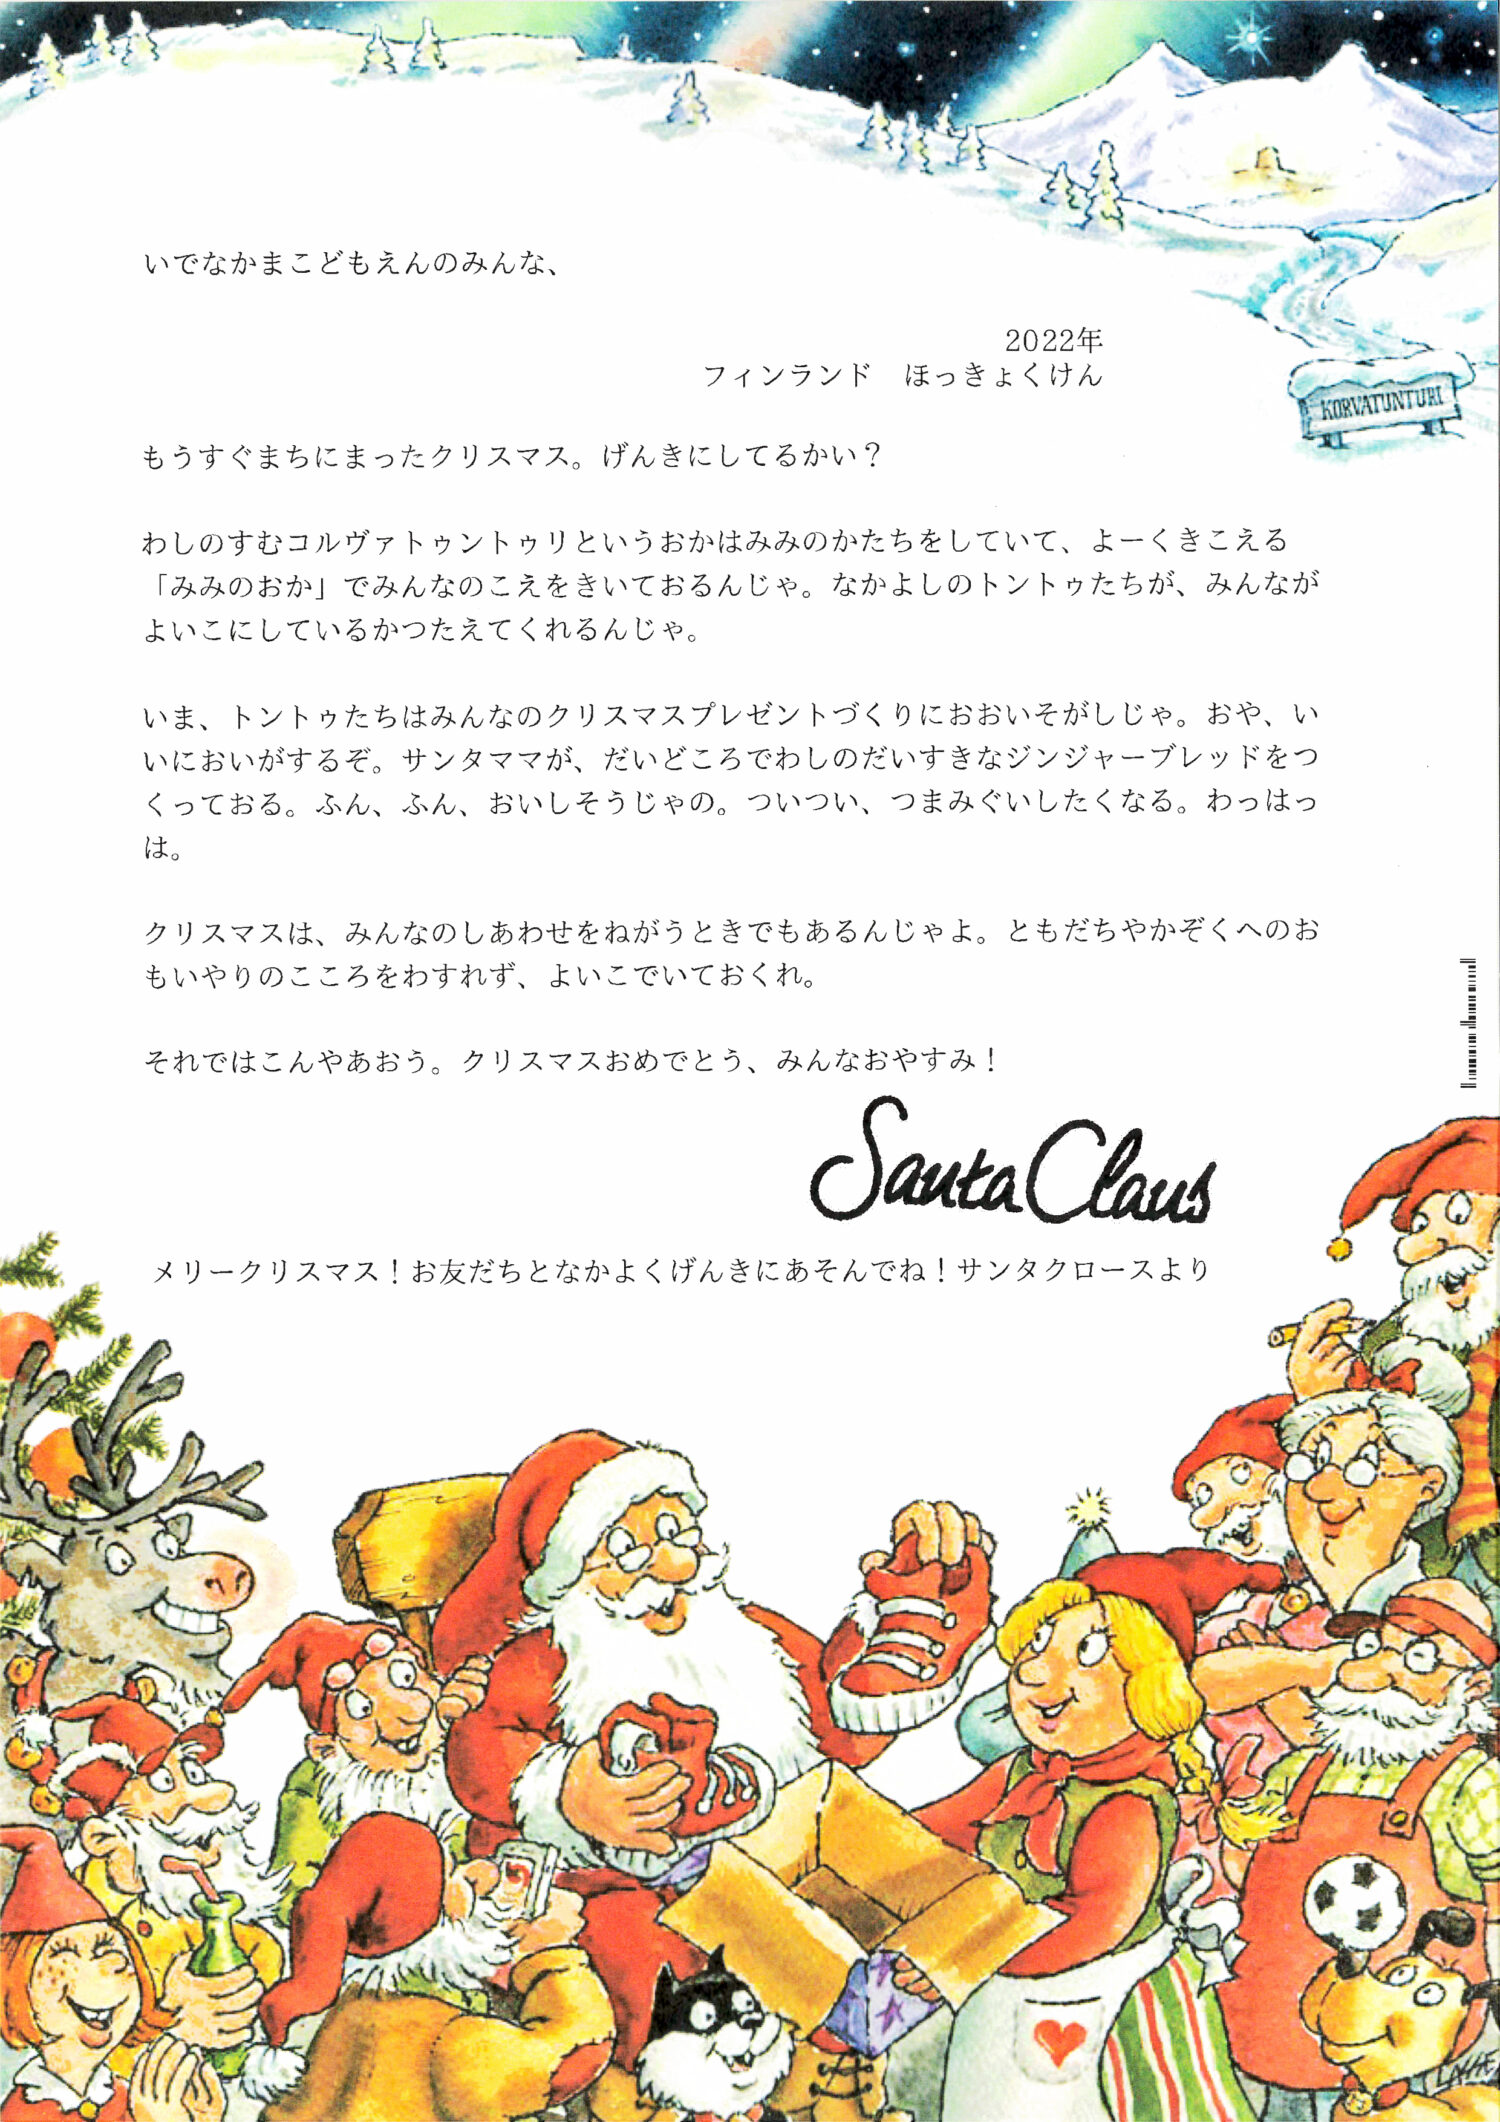 いでなかまこどもえんのみんな、
2022年
フィンランド　ほっきょくけん
KORVATUNTURI
もうすぐまちにまったクリスマス。げんきにしてるかい？
わしのすむコルヴァトゥントゥリというおかはみみのかたちをしていて、よーくきこえる
「みみのおか」でみんなのこえをきいておるんじゃ。なかよしのトントゥたちが、みんなが
よいこにしているかつたえてくれるんじゃ。
いま、トントゥたちはみんなのクリスマスプレゼントづくりにおおいそがしじゃ。おや、い
いにおいがするぞ。サンタママが、だいどころでわしのだいすきなジンジャーブレッドをつ
くっておる。ふん、ふん、おいしそうじゃの。ついつい、つまみぐいしたくなる。わっはっ
は。
クリスマスは、みんなのしあわせをねがうときでもあるんじゃよ。ともだちやかぞくへのお
もいやりのこころをわすれず、よいこでいておくれ。
それではこんやあおう。クリスマスおめでとう、みんなおやすみ！
Santa Claus
メリークリスマス！お友だちとなかよくげんきにあそんでね！サンタクロースより